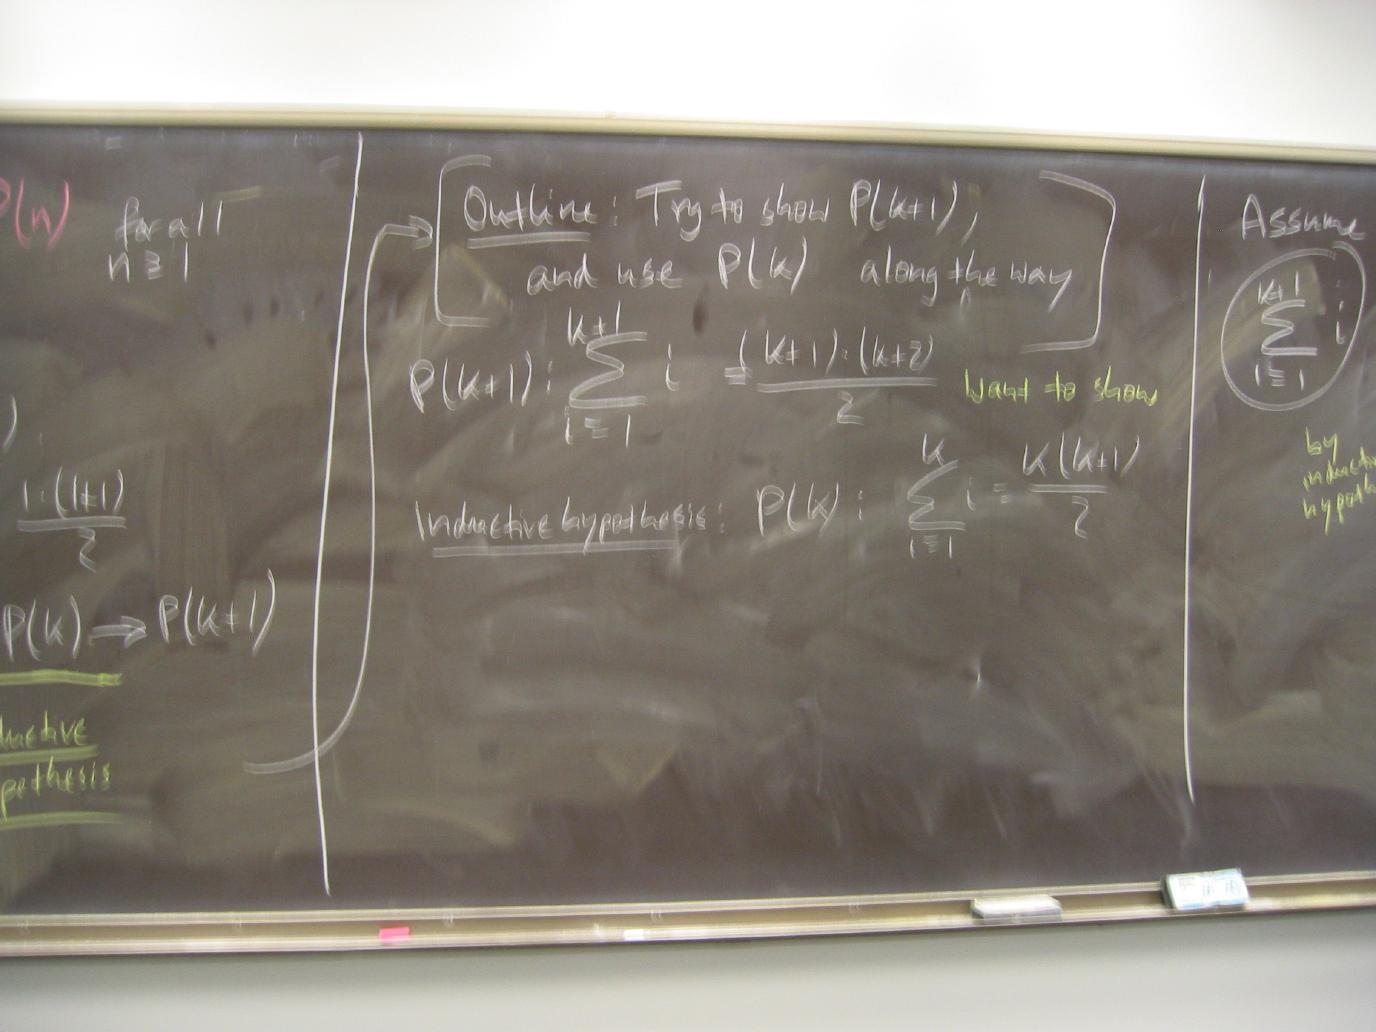 P(n) for all
n ≥ 1
).
1·(1+1)
2
P(k) → P(k+1)
Outline: Try to show P(k+1),
and use P(k) along the way
P(k+1): \sum_{i=1}^{k+1} i = \frac{(k+1)·(k+2)}{2} Want to show
Inductive hypothesis: P(k): \sum_{i=1}^{k} i = \frac{k(k+1)}{2}
Assume
\sum_{i=1}^{k+1} i
by